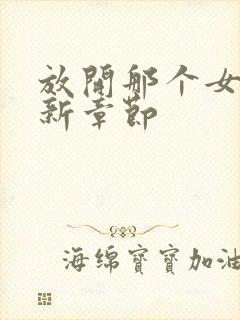 放開那个女
新章節
海绵寶寶加油